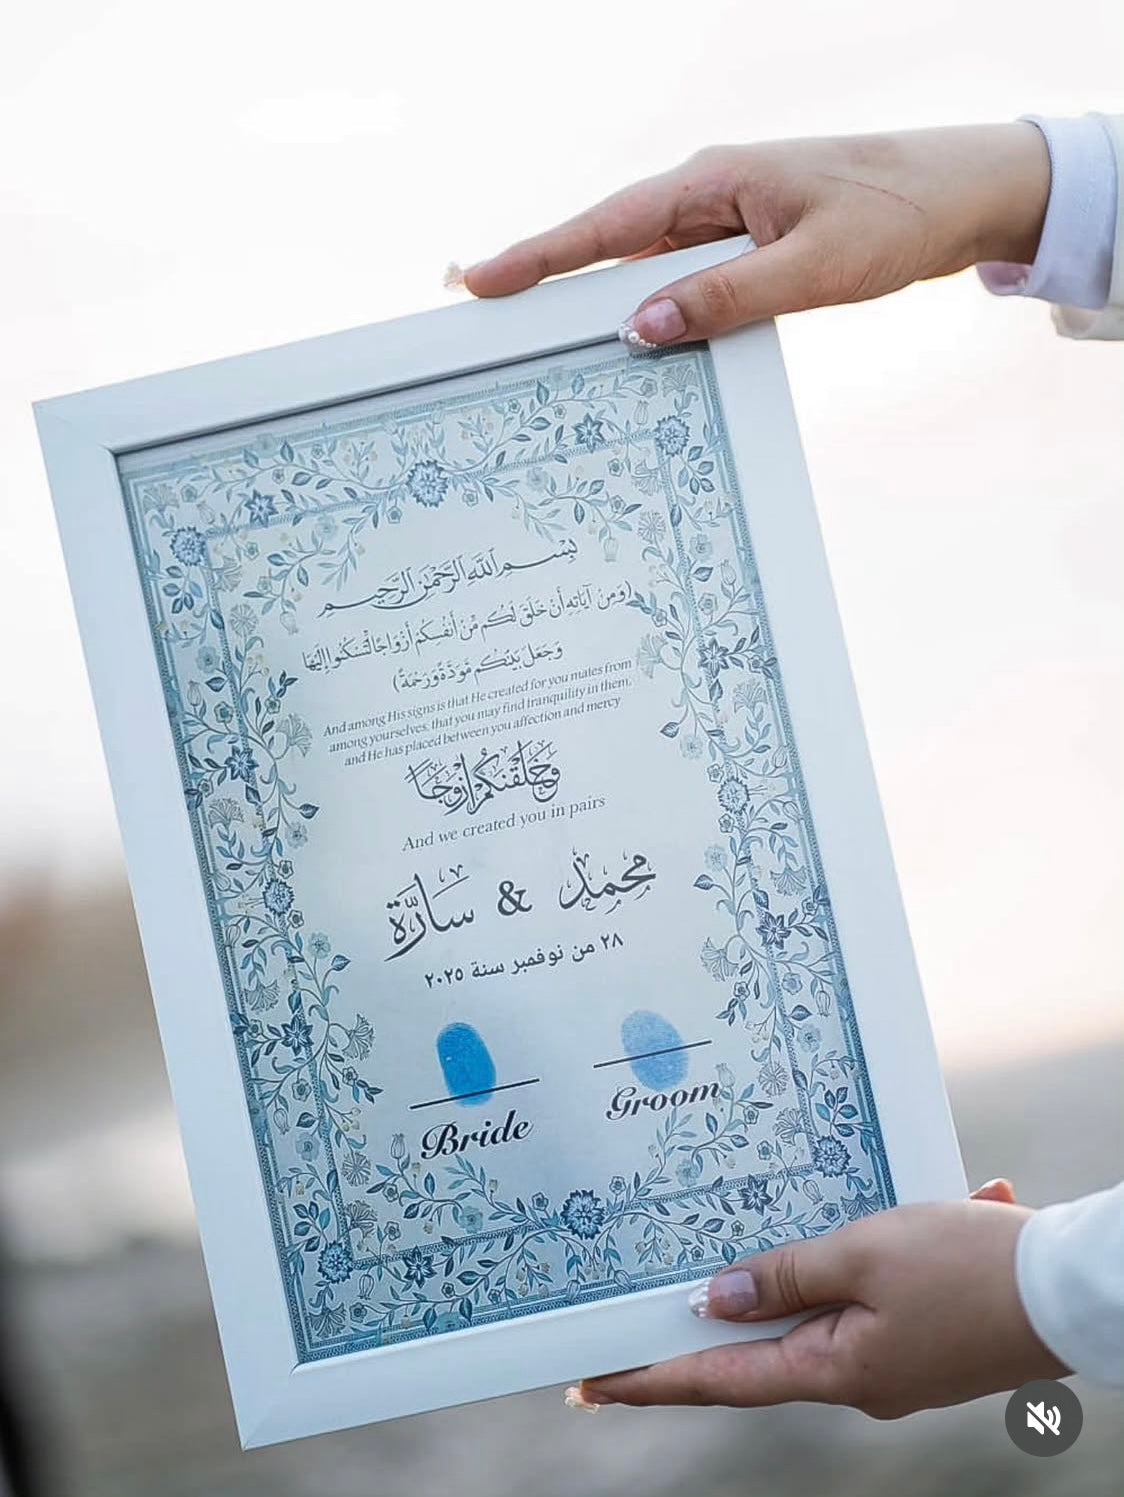 بِسْمِ ٱللَّهِ ٱلرَّحْمَٰنِ ٱلرَّحِيمِ
(وَمِنْ آيَاتِهِ أَنْ خَلَقَ لَكُم مِّنْ أَنفُسِكُمْ أَزْوَاجًا لِّتَسْكُنُوا إِلَيْهَا
وَجَعَلَ بَيْنَكُم مَّوَدَّةً وَرَحْمَةً)
And among His signs is that He created for you mates from
among yourselves, that you may find tranquility in them,
and He has placed between you affection and mercy
وَخَلَقْنَكُمْ أَزْوَجًا
And we created you in pairs
محمد & سارَّة
٢٨ من نوفمبر سنة ٢٠٢٥
Bride Groom